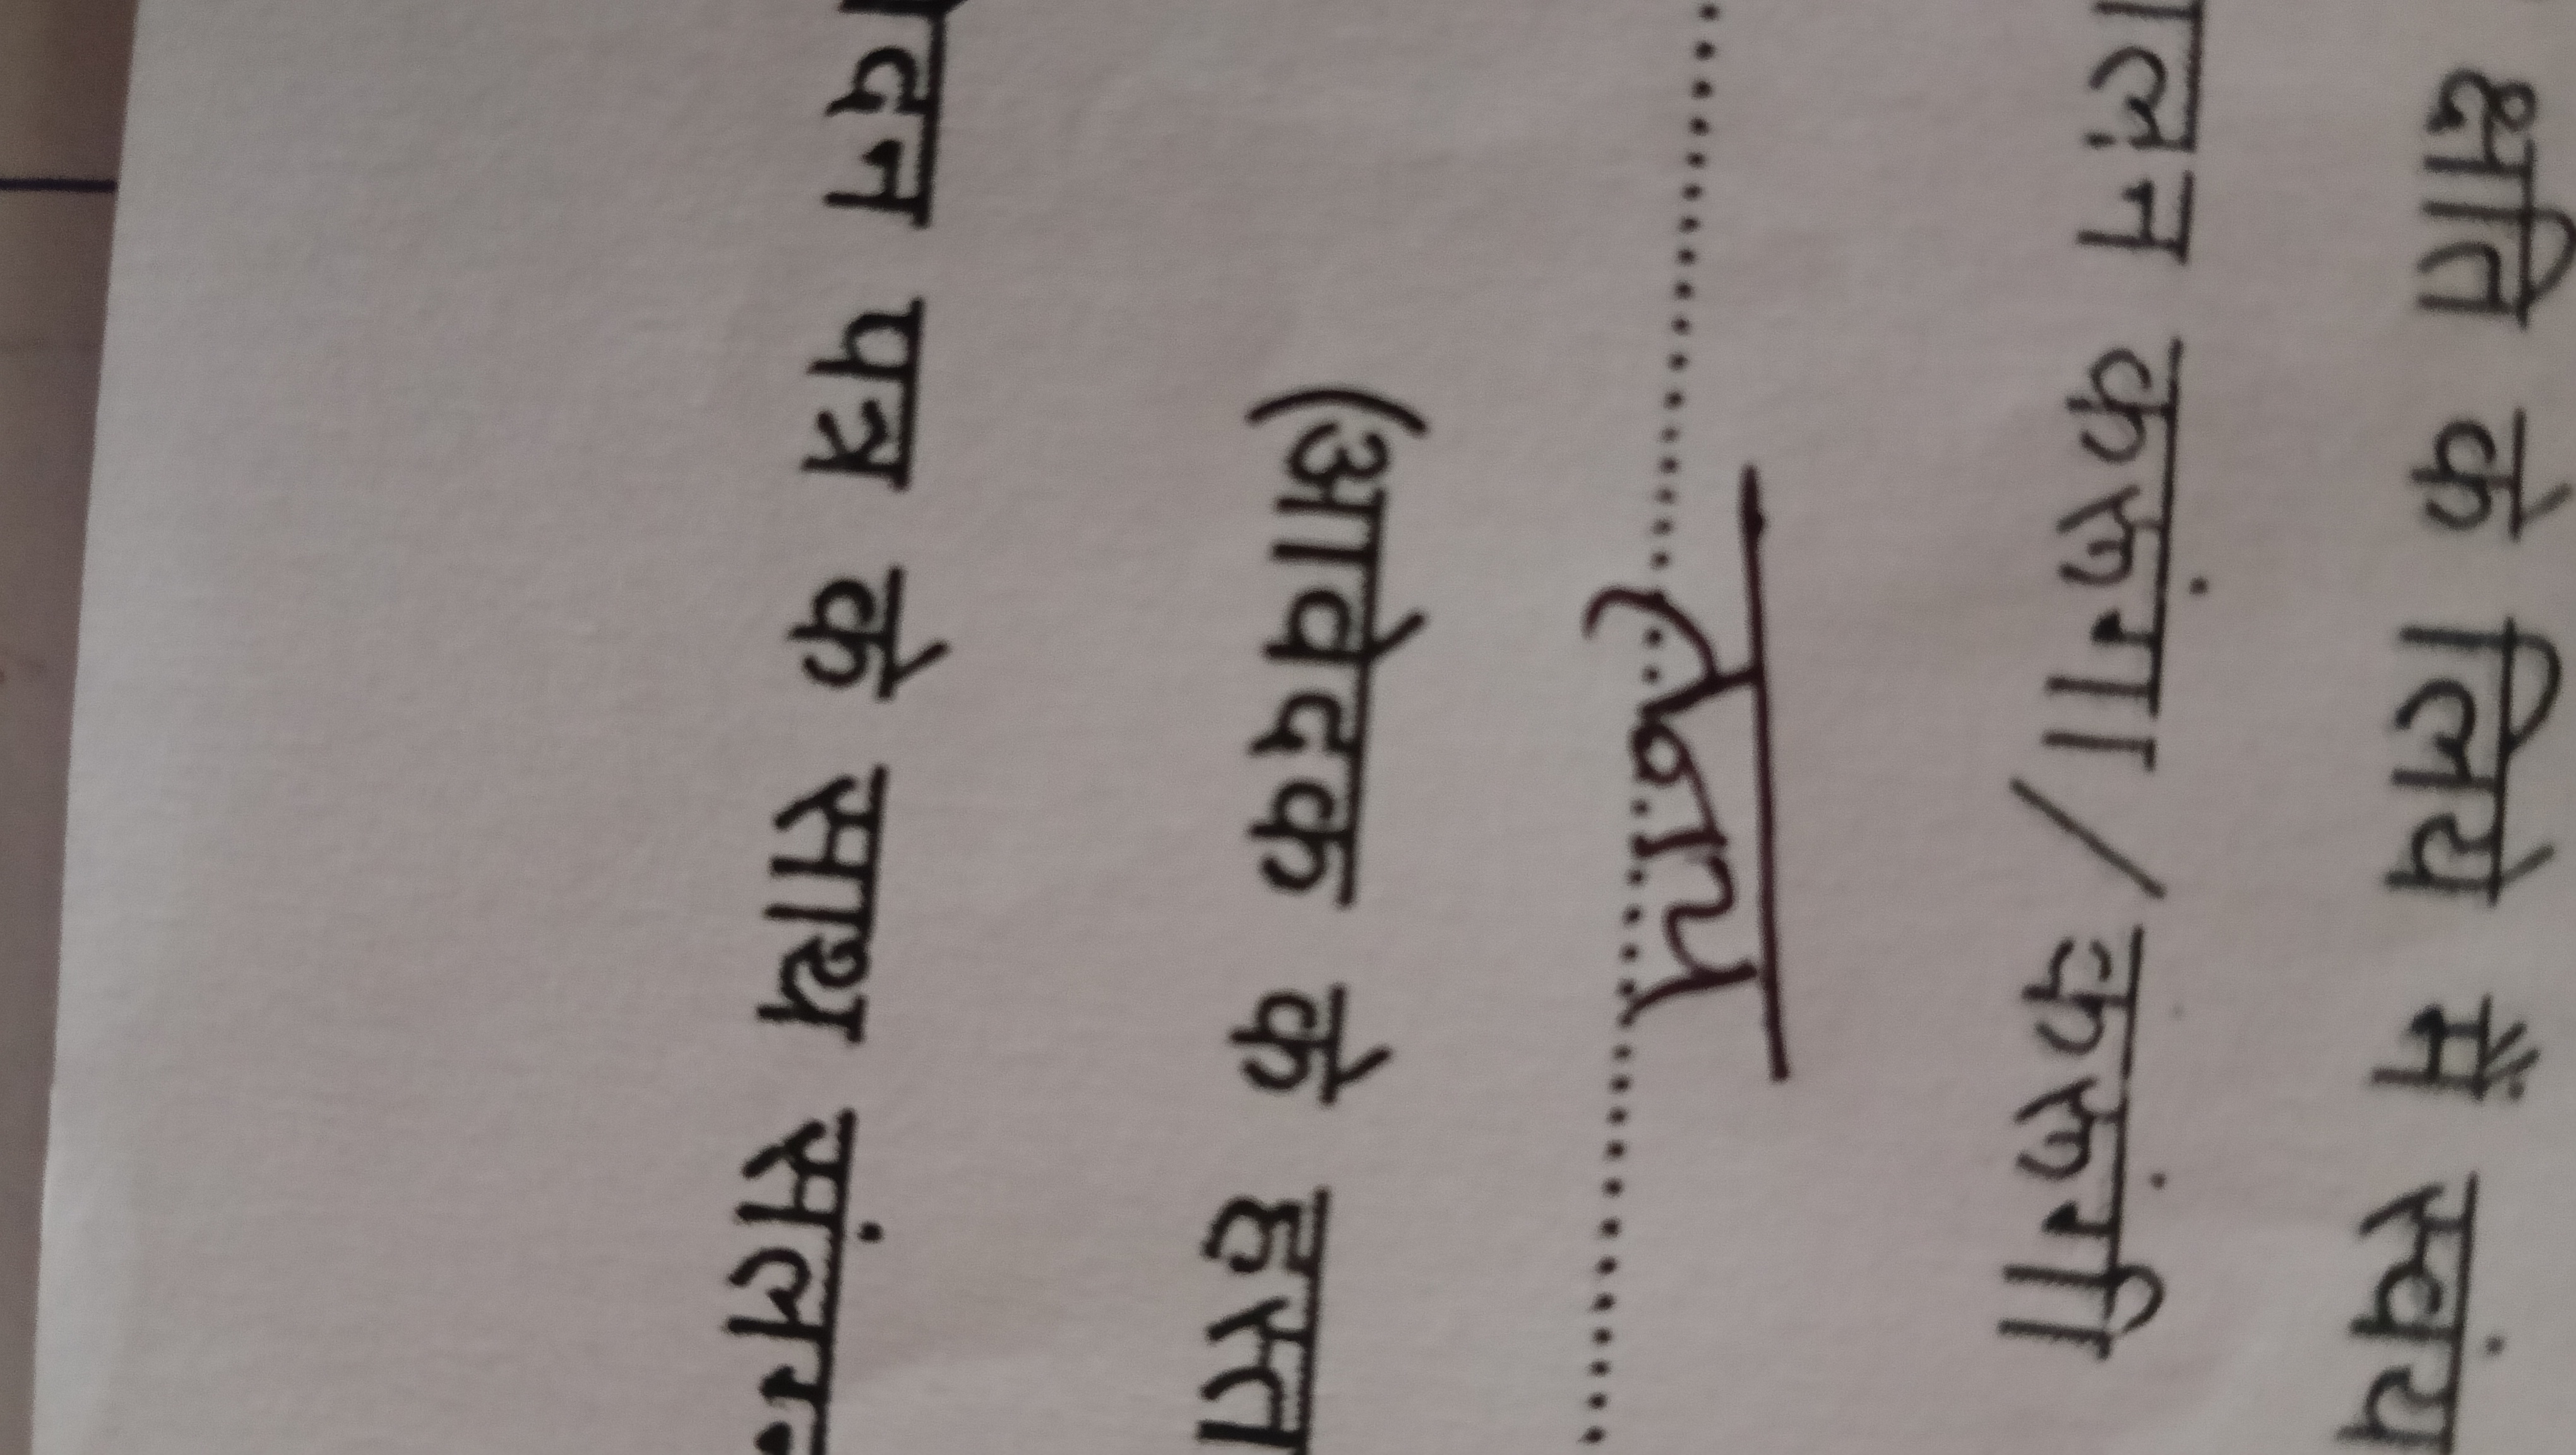 क्षति के लिये में स्वंय
ालन करूंगा/करूंगी
..........................................
(आवेदक के हस्त
ेदन पत्र के साथ संलग्न